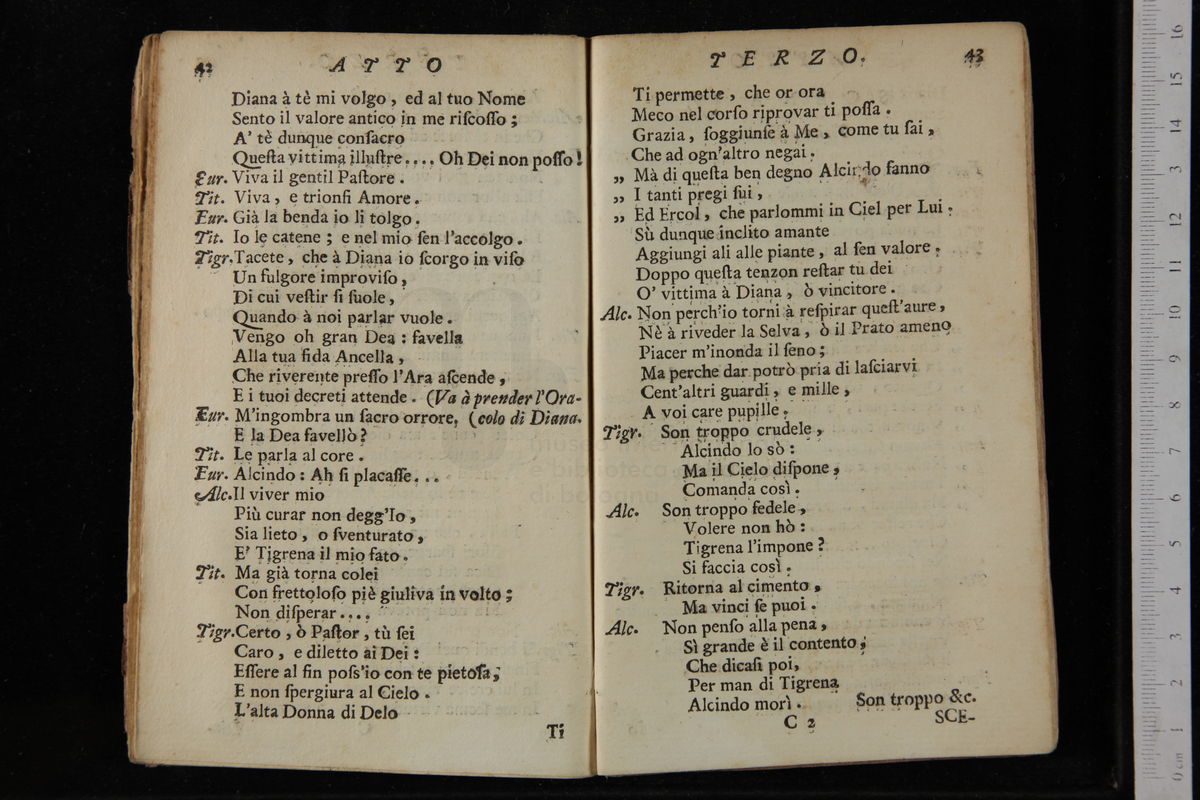 42 ATTO
Diana à tè mi volgo, ed al tuo Nome
Sento il valore antico in me riſcoſſo;
A' tè dunque conſacro
Queſta vittima illuſtre.... Oh Dei non poſſo!
Eur. Viva il gentil Paſtore.
Tit. Viva, e trionfi Amore.
Eur. Già la benda io li tolgo.
Tit. Io le catene; e nel mio ſen l'accolgo.
Tigr. Tacete, che à Diana io ſcorgo in viſo
Un fulgore improviſo,
Di cui veſtir ſi ſuole,
Quando à noi parlar vuole.
Vengo oh gran Dea: favella
Alla tua fida Ancella,
Che riverente preſſo l'Ara aſcende,
E i tuoi decreti attende. (Va à prender l'Ora-
Eur. M'ingombra un ſacro orrore, (colo di Diana.
E la Dea favellò?
Tit. Le parla al core.
Eur. Alcindo: Ah ſi placaſſe...
Alc. Il viver mio
Più curar non degg'Io,
Sia lieto, o ſventurato,
E' Tigrena il mio fato.
Tit. Ma già torna colei
Con frettoloſo piè giuliva in volto;
Non diſperar....
Tigr. Certo, ò Paſtor, tù ſei
Caro, e diletto ai Dei:
Eſſere al fin poſs'io con te pietoſa;
E non ſpergiura al Cielo.
L'alta Donna di Delo
Ti
TERZO. 43
Ti permette, che or ora
Meco nel corſo riprovar ti poſſa.
Grazia, ſoggiunſe à Me, come tu ſai,
Che ad ogn'altro negai.
„ Mà di queſta ben degno Alcindo fanno
„ I tanti pregi ſui,
„ Ed Ercol, che parlommi in Ciel per Lui.
Sù dunque inclito amante
Aggiungi ali alle piante, al ſen valore.
Doppo queſta tenzon reſtar tu dei
O' vittima à Diana, ò vincitore.
Alc. Non perch'io torni à reſpirar queſt'aure,
Nè à riveder la Selva, ò il Prato ameno
Piacer m'inonda il ſeno;
Ma perche dar potrò pria di laſciarvi
Cent'altri guardi, e mille,
A voi care pupille.
Tigr. Son troppo crudele,
Alcindo lo sò:
Ma il Cielo diſpone,
Comanda così.
Alc. Son troppo fedele,
Volere non hò:
Tigrena l'impone?
Si faccia così.
Tigr. Ritorna al cimento,
Ma vinci ſe puoi.
Alc. Non penſo alla pena,
Sì grande è il contento;
Che dicaſi poi,
Per man di Tigrena
Alcindo morì. Son troppo &c.
C 2 SCE-
e biblioteca
di bologna
0 cm 1 2 3 4 5 6 7 8 9 10 11 12 13 14 15 16